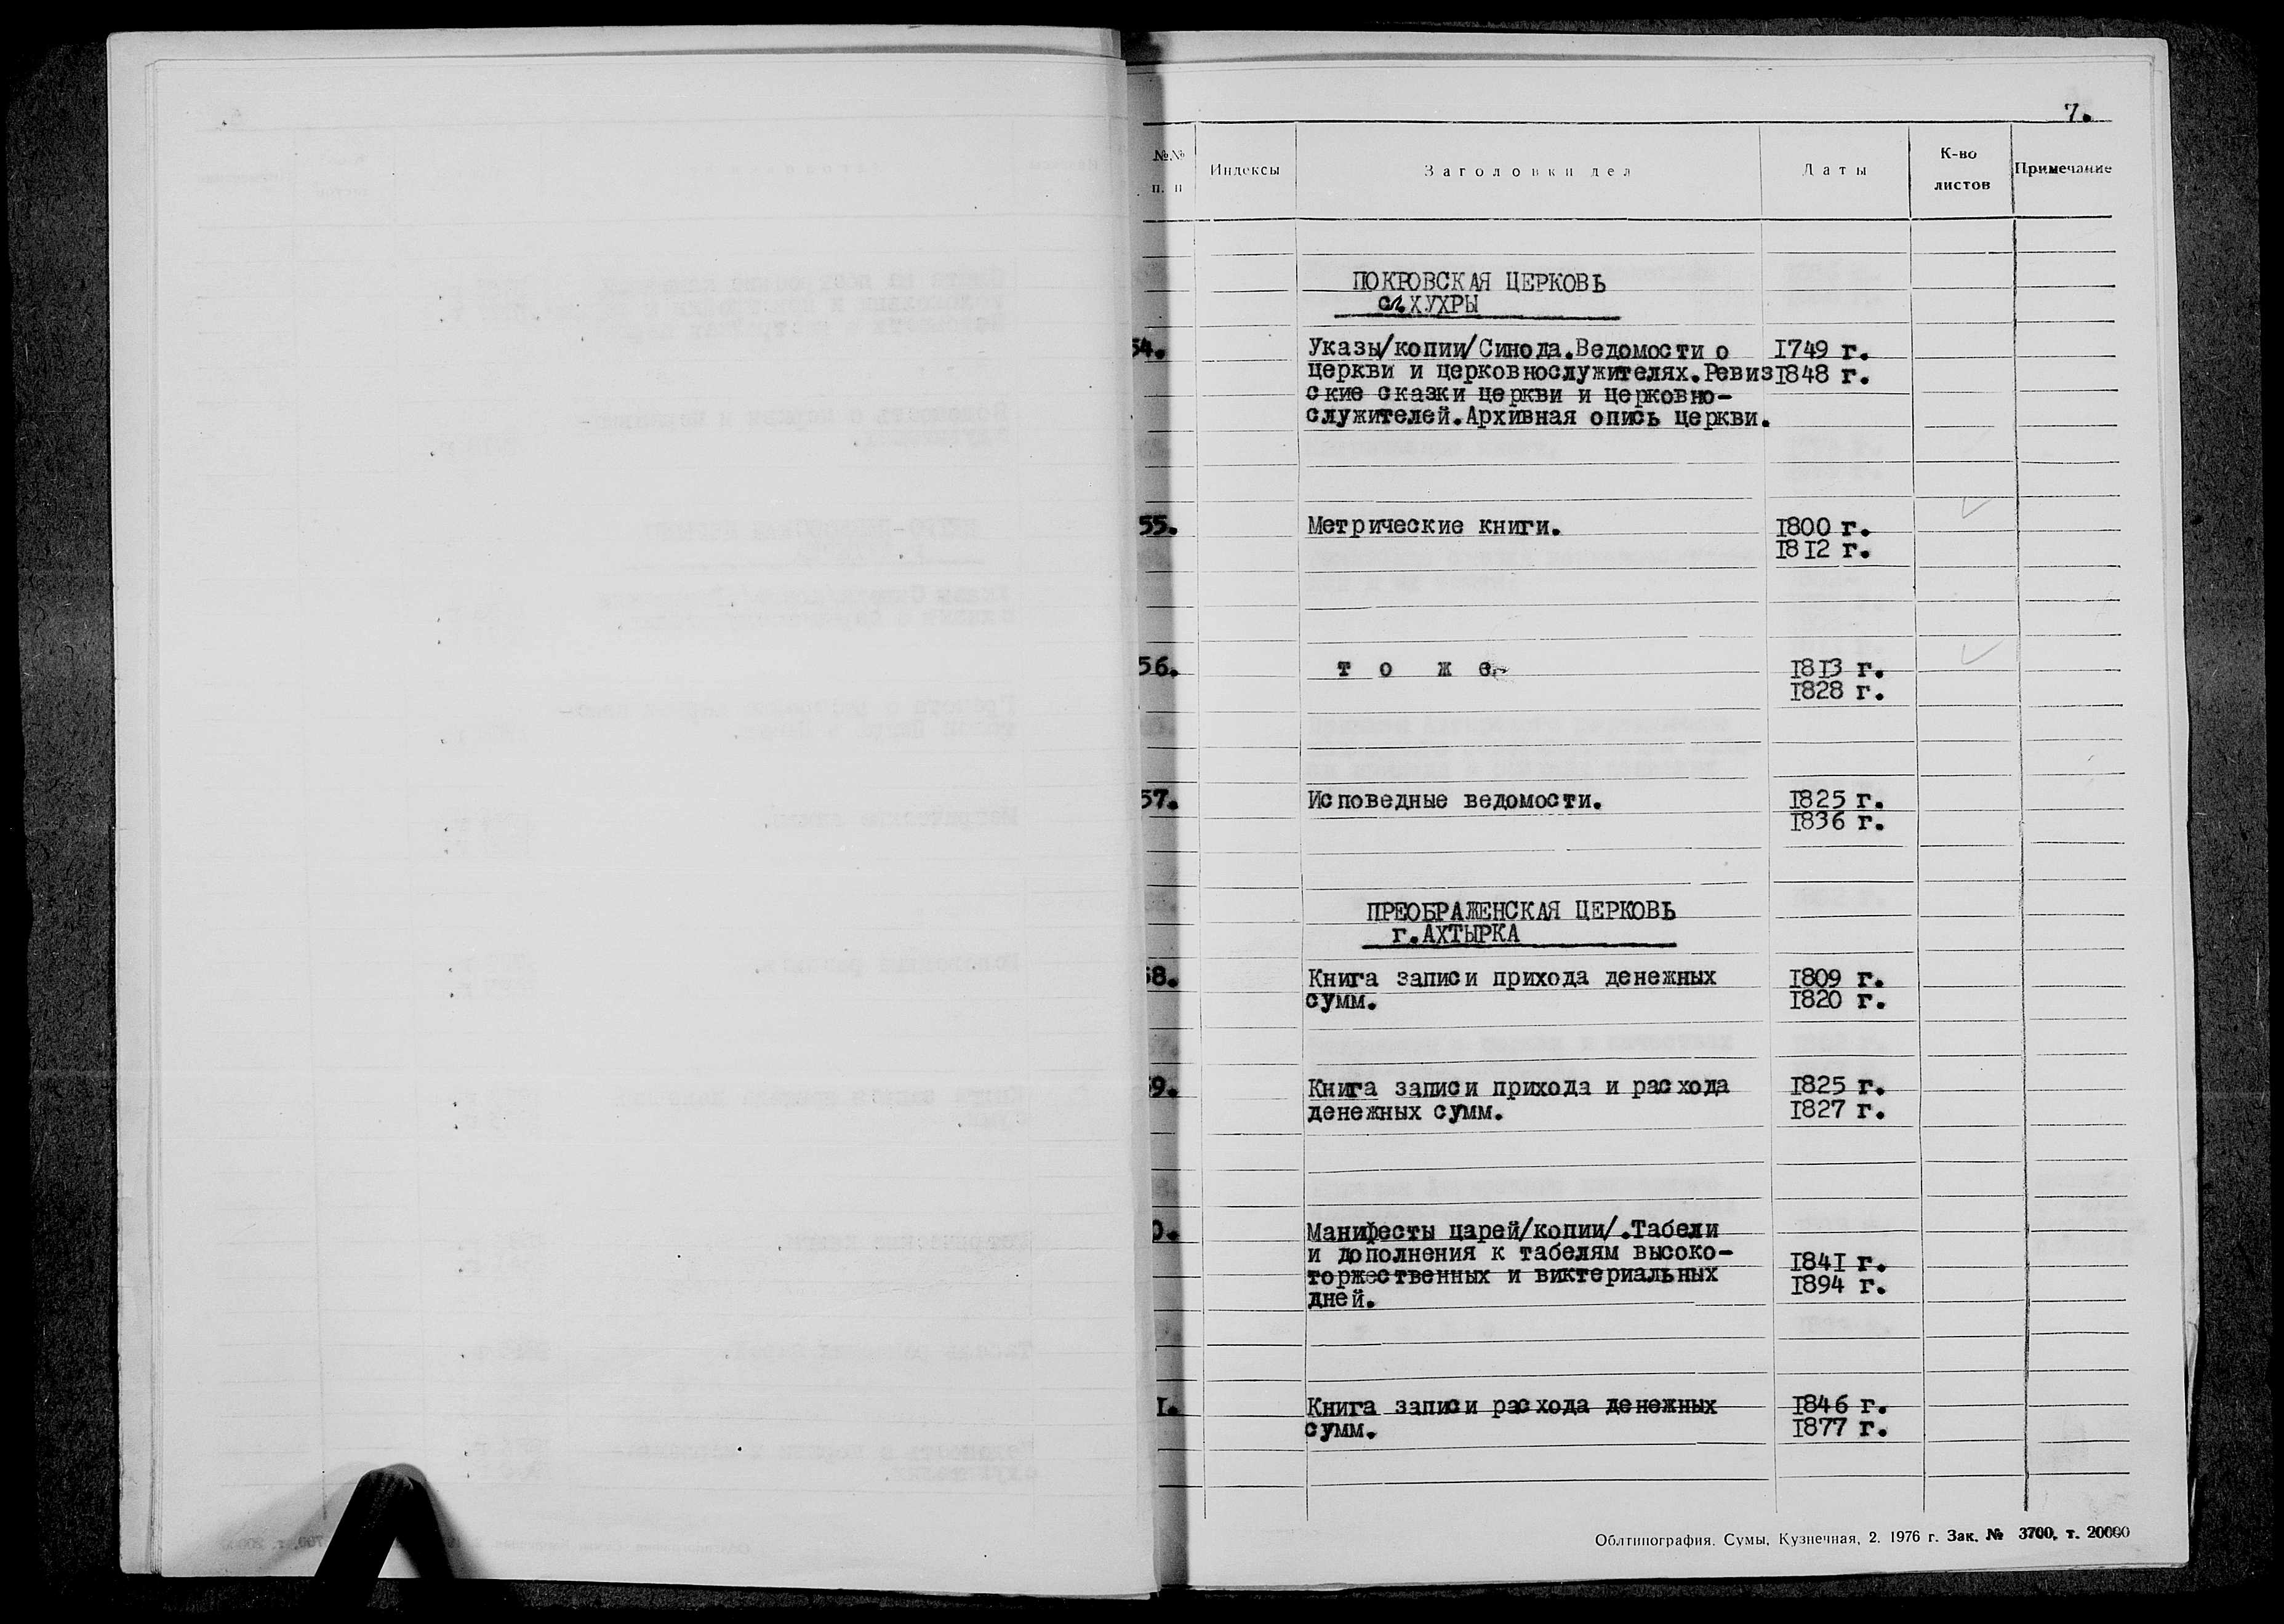 7.
№№ п. п
Индексы
Заголовки дел
Даты
К-во листов
Примечание
ПОКРОВСКАЯ ЦЕРКОВЬ
сл.ХУХРЫ
54. Указы/копии/Синода.Ведомости о 1749 г.
церкви и церковнослужителях.Ревиз 1848 г.
ские сказки церкви и церковно-
служителей.Архивная опись церкви.
55. Метрические книги. 1800 г.
1812 г.
56. т о ж е. 1813 г.
1828 г.
57. Исповедные ведомости. 1825 г.
1836 г.
ПРЕОБРАЖЕНСКАЯ ЦЕРКОВЬ
г.АХТЫРКА
58. Книга записи прихода денежных 1809 г.
сумм. 1820 г.
59. Книга записи прихода и расхода 1825 г.
денежных сумм. 1827 г.
0. Манифесты царей/копии/.Табели
и дополнения к табелям высоко- 1841 г.
торжественных и виктериальных 1894 г.
дней.
1. Книга записи расхода денежных 1846 г.
сумм. 1877 г.
Облтипография. Сумы, Кузнечная, 2. 1976 г. Зак. № 3700, т. 20000